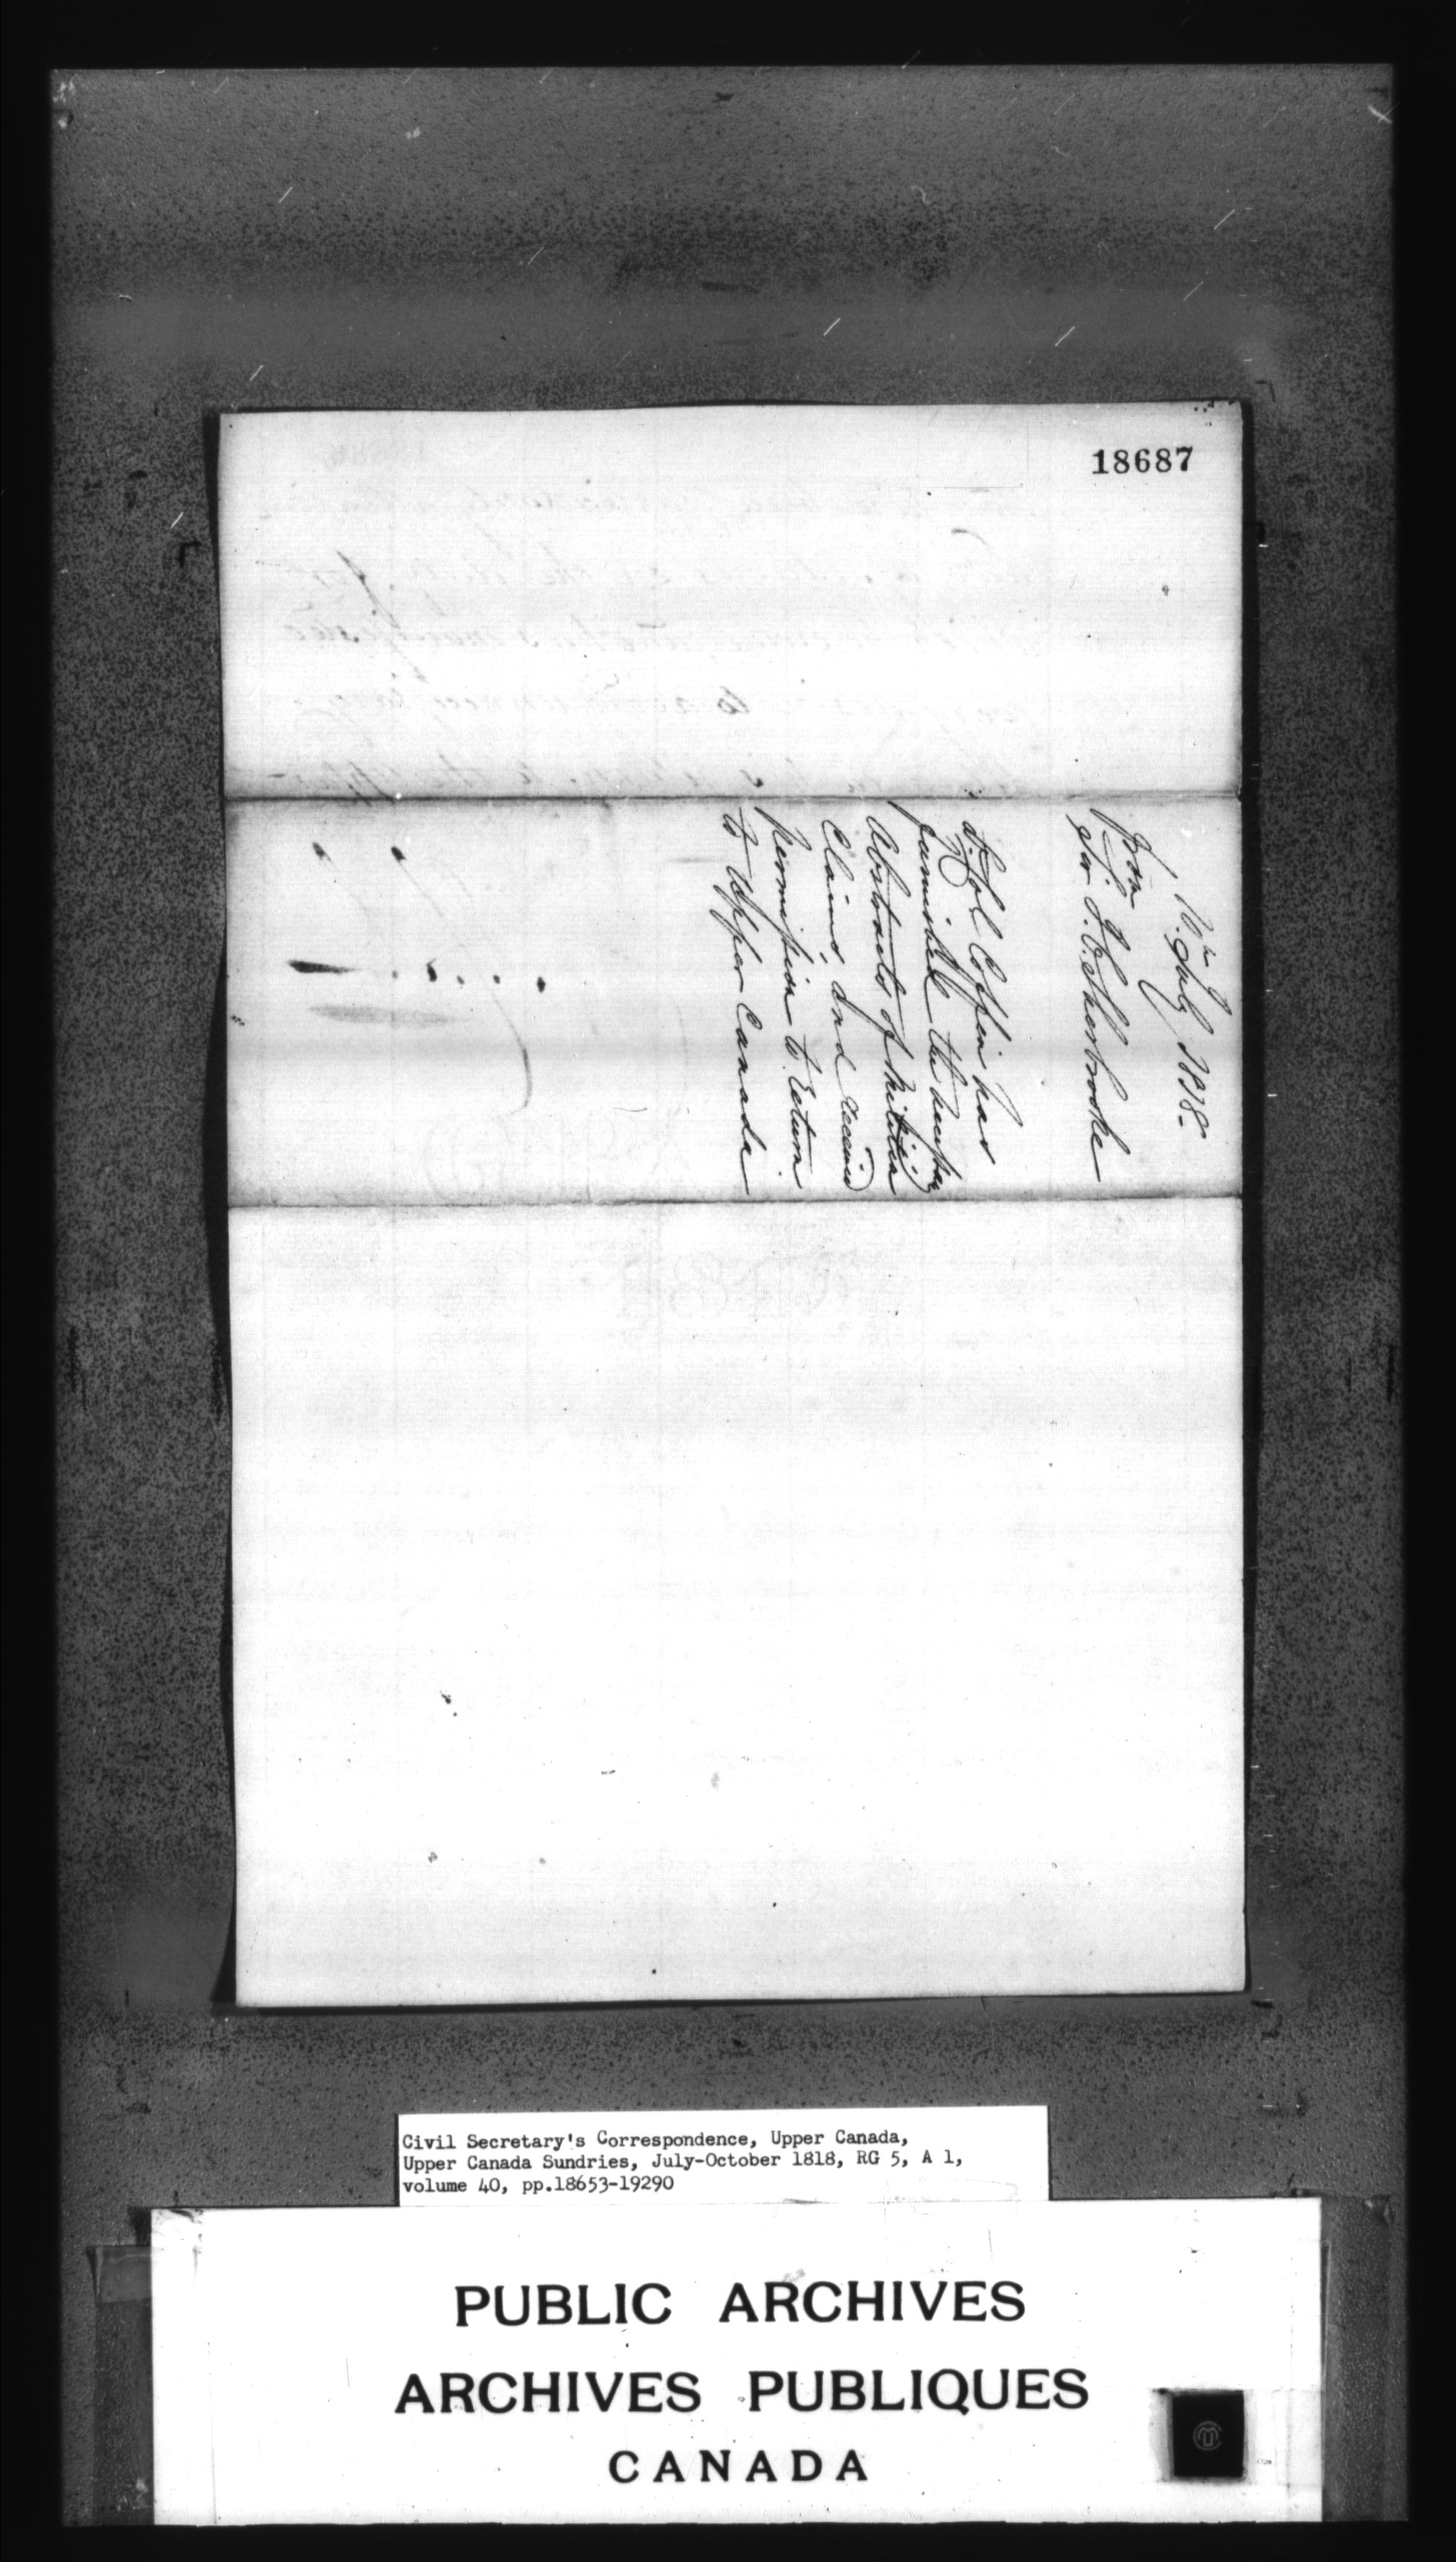 18687
July 1818-
From
Sir J. C. Sherbrooke
Lt. Col Coffin has
furnished the
Abstracts of Militia
Claims and received
Permission to return
to Upper Canada
Civil Secretary's Correspondence, Upper Canada,
Upper Canada Sundries, July-October 1818, RG 5, A 1,
volume 40, pp.18653-19290
PUBLIC ARCHIVES
ARCHIVES PUBLIQUES
CANADA